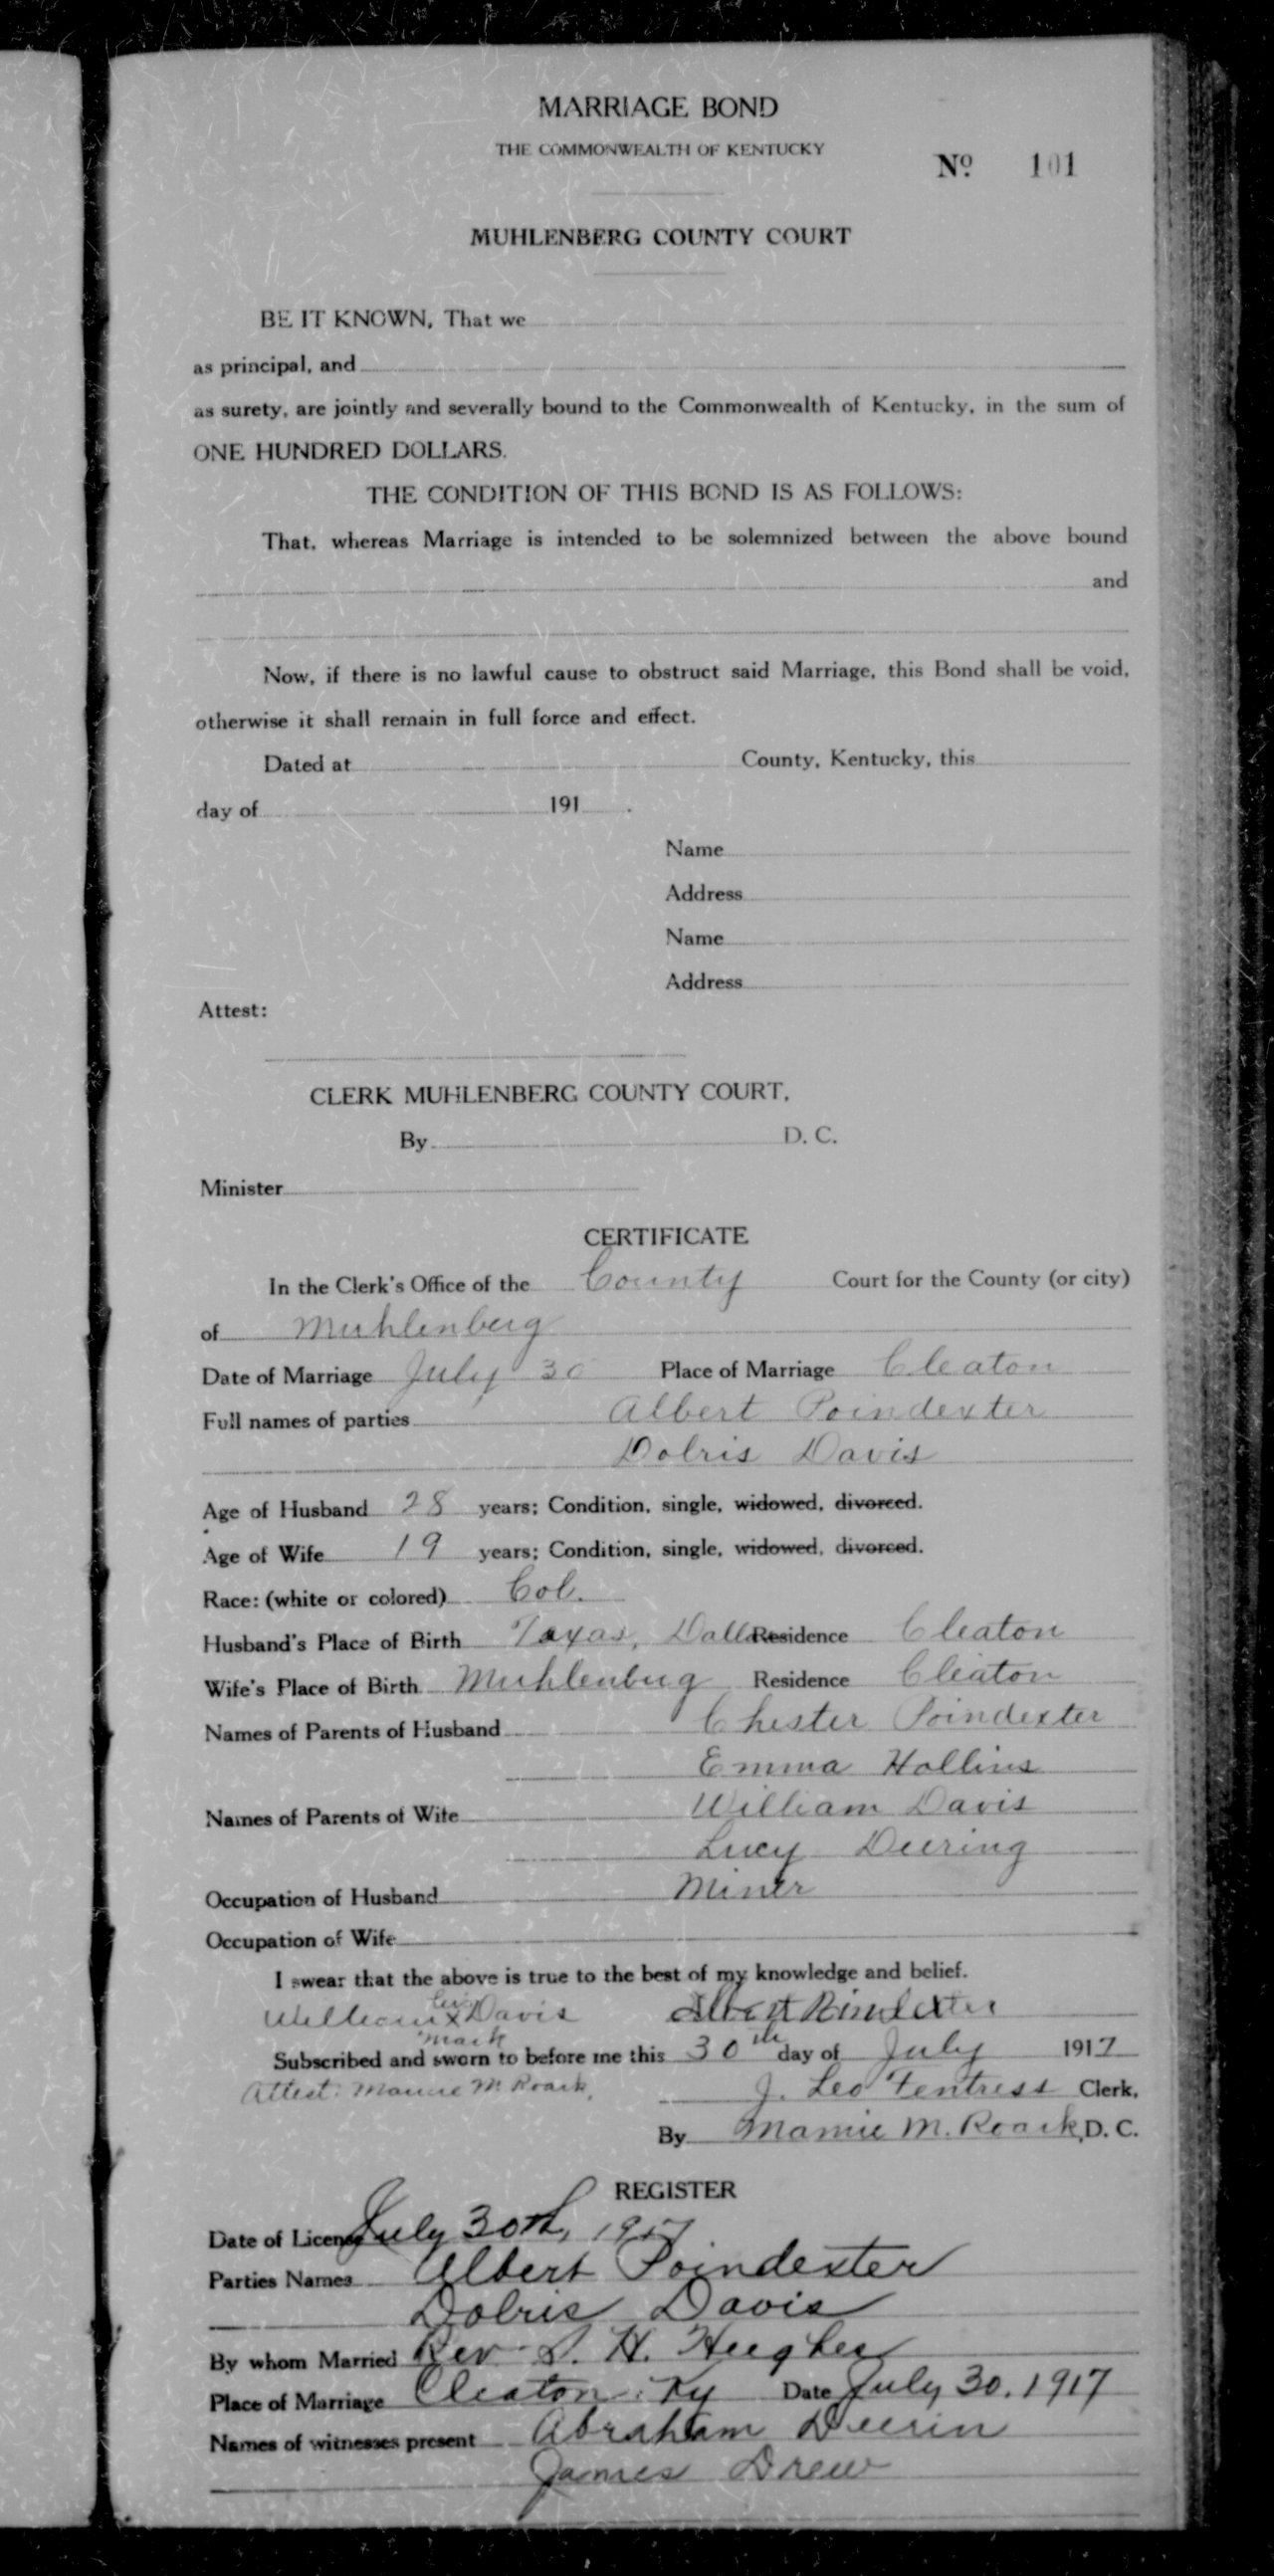 MARRIAGE BOND
THE COMMONWEALTH OF KENTUCKY
No. 101
MUHLENBERG COUNTY COURT
BE IT KNOWN, That we
as principal, and
as surety, are jointly and severally bound to the Commonwealth of Kentucky, in the sum of
ONE HUNDRED DOLLARS.
THE CONDITION OF THIS BOND IS AS FOLLOWS:
That, whereas Marriage is intended to be solemnized between the above bound
and
Now, if there is no lawful cause to obstruct said Marriage, this Bond shall be void,
otherwise it shall remain in full force and effect.
Dated at County, Kentucky, this
day of 191 .
Name
Address
Name
Address
Attest:
CLERK MUHLENBERG COUNTY COURT,
By D. C.
Minister
CERTIFICATE
In the Clerk's Office of the County Court for the County (or city)
of Muhlenberg
Date of Marriage July 30 Place of Marriage Cleaton
Full names of parties Albert Poindexter
Dolris Davis
Age of Husband 28 years; Condition, single, widowed, divorced.
Age of Wife 19 years; Condition, single, widowed, divorced.
Race: (white or colored) Col.
Husband's Place of Birth Taxas, Dallas Residence Cleaton
Wife's Place of Birth Muhlenburg Residence Cleaton
Names of Parents of Husband Chester Poindexter
Emma Hollins
Names of Parents of Wife William Davis
Lucy Deering
Occupation of Husband Miner
Occupation of Wife
I swear that the above is true to the best of my knowledge and belief.
William his x mark Davis Albert Poindexter
Subscribed and sworn to before me this 30th day of July 1917
Attest: Mamie M. Roark, J. Leo Fentress Clerk,
By Mamie M. Roark, D. C.
REGISTER
Date of License July 30th, 1917
Parties Names Albert Poindexter
Dolris Davis
By whom Married Rev. S. H. Hughes
Place of Marriage Cleaton, Ky Date July 30, 1917
Names of witnesses present Abraham Deerin
James Drew